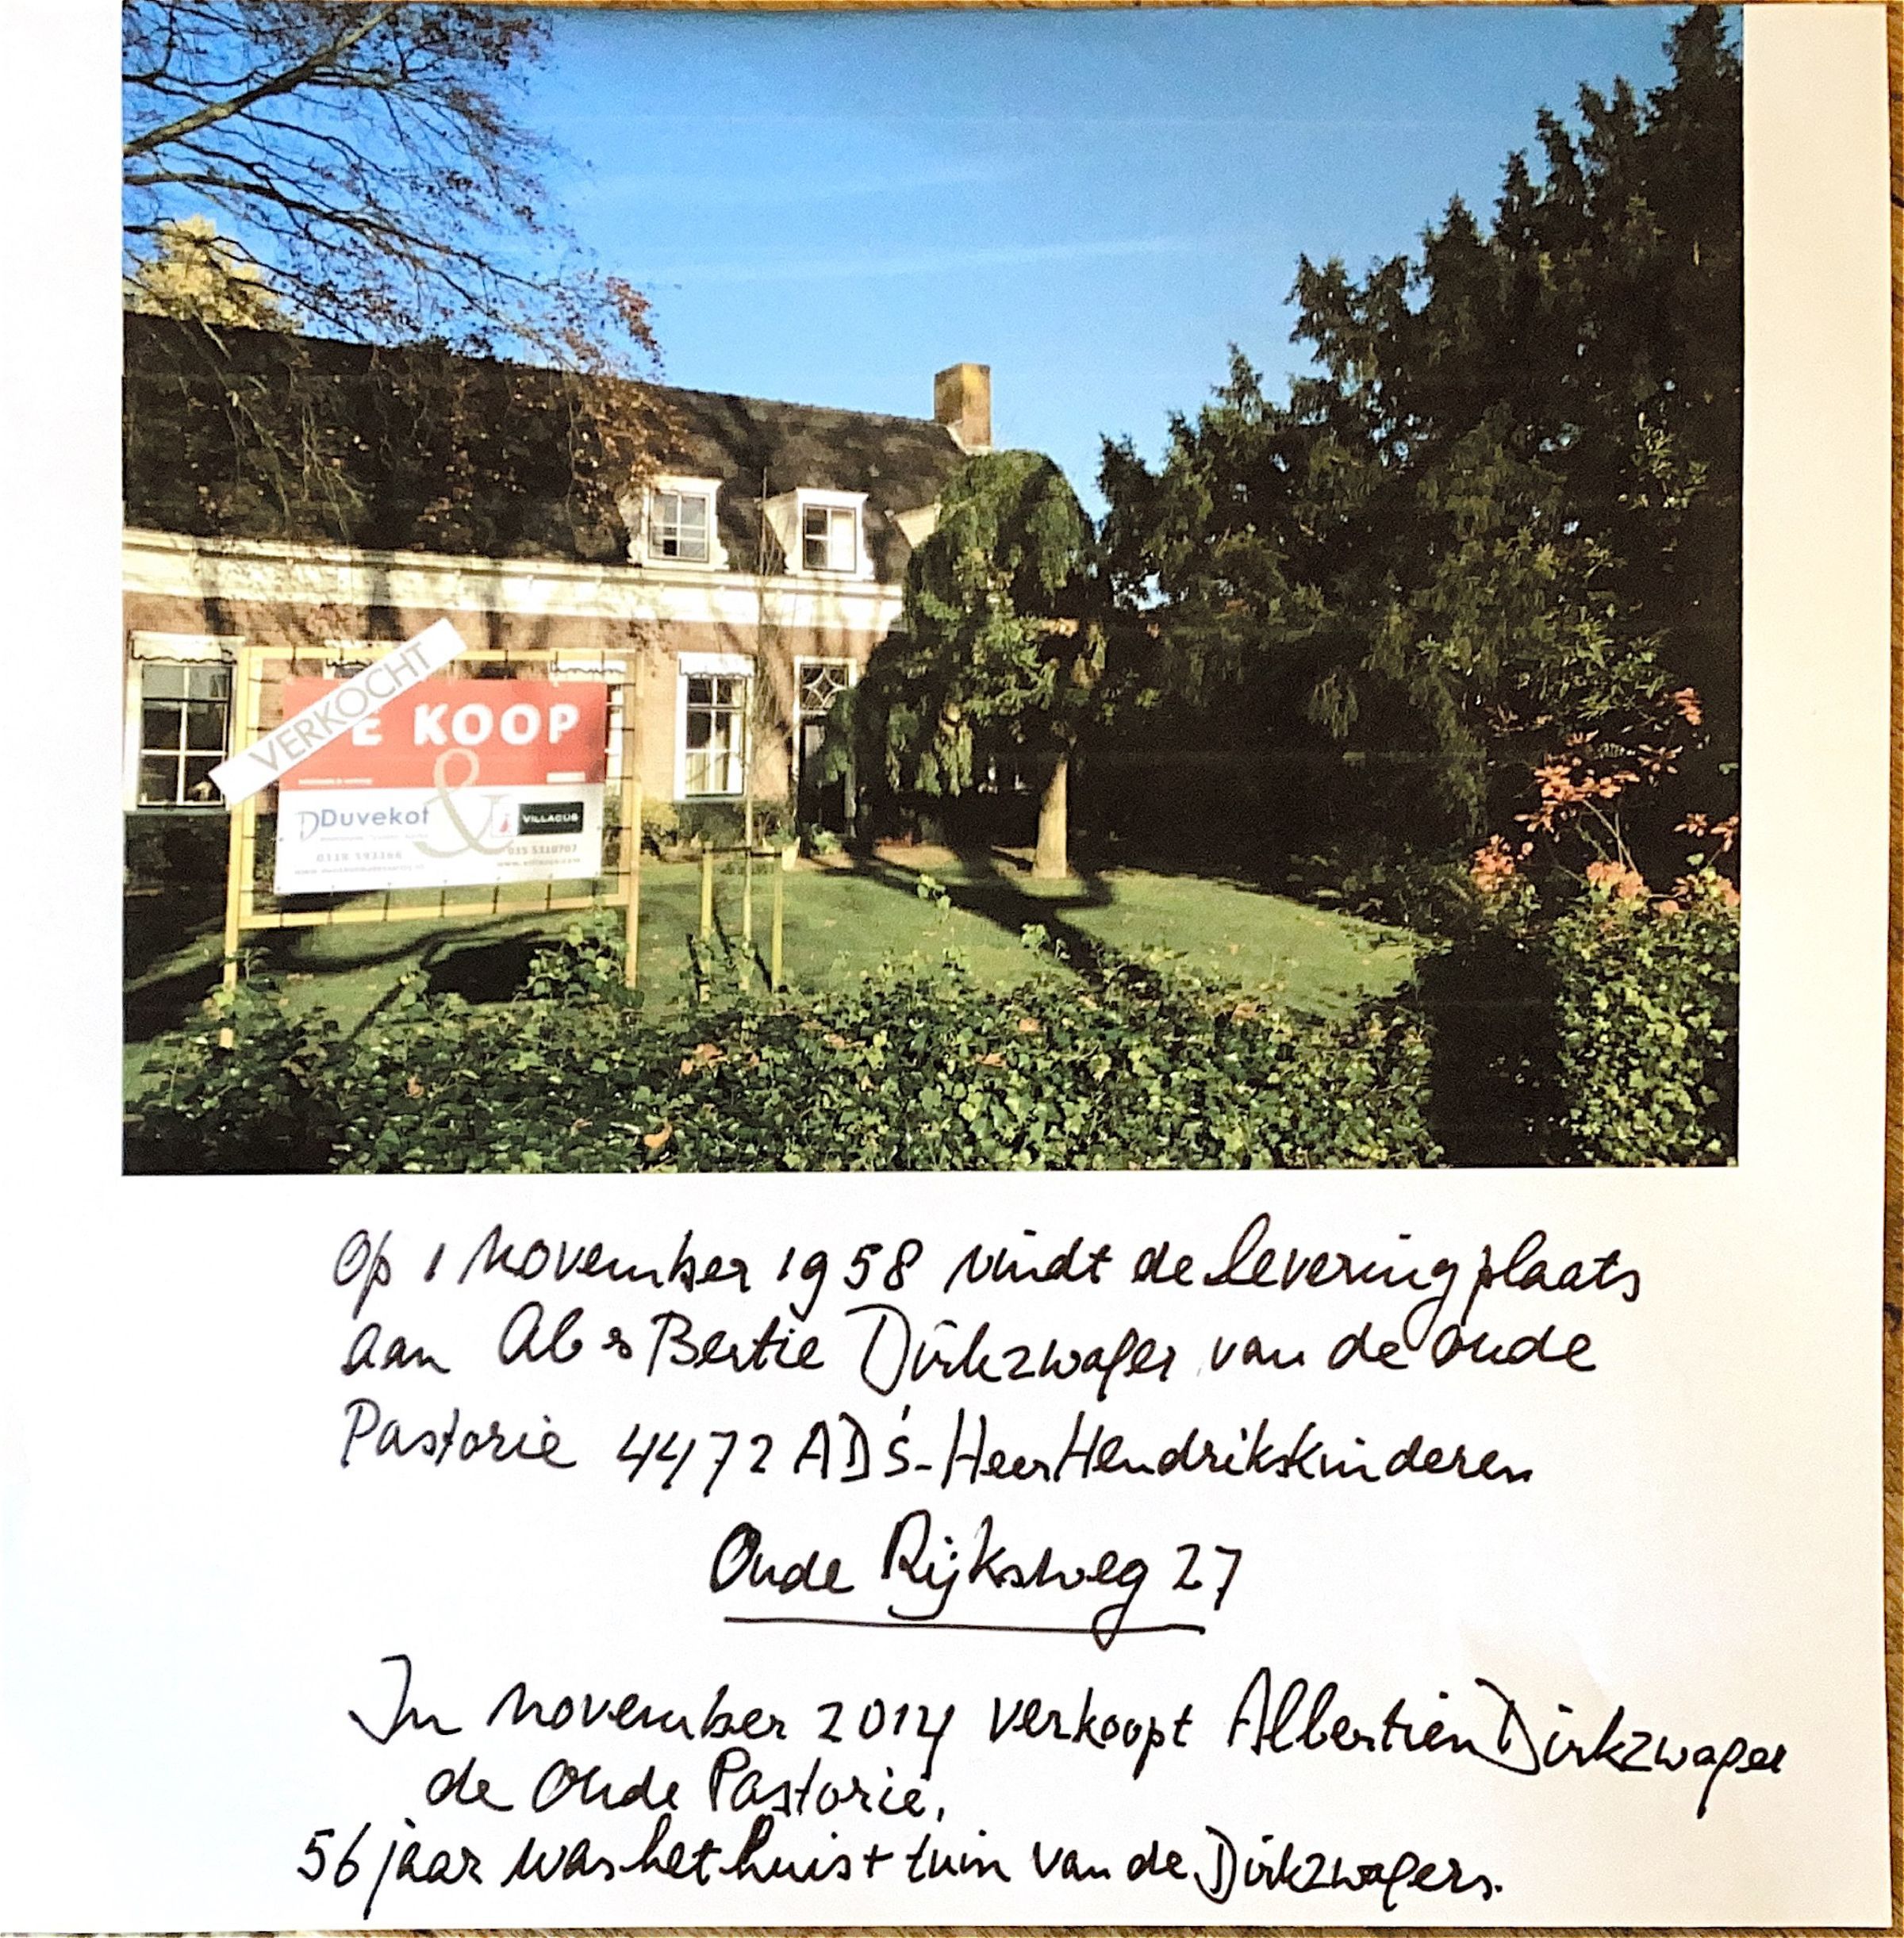 VERKOCHT
E KOOP
&
DDuvekot
VILLAGUS
035 5310707
Op 1 november 1958 vindt de levering plaats
aan Ab & Bertie Dirkzwager van de oude
Pastorie 4472 AD 's-HeerHendrikskinderen
Oude Rijksweg 27
In november 2014 verkoopt Albertien Dirkzwager
de Oude Pastorie.
56 jaar was het huis + tuin van de Dirkzwagers.